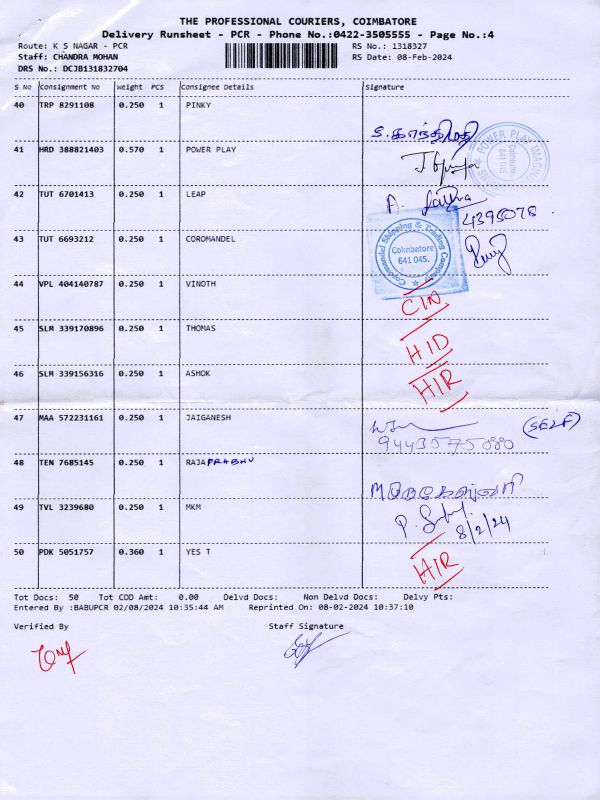 THE PROFESSIONAL COURIERS, COIMBATORE
Delivery Runsheet - PCR - Phone No.:0422-3505555 - Page No.:4
Route: K S NAGAR - PCR
RS No.: 1318327
Staff: CHANDRA MOHAN
RS Date: 08-Feb-2024
DRS No.: DCJB131832704
S No Consignment No Weight PCS Consignee Details Signature
40 TRP 8291108 0.250 1 PINKY
சு.காந்திமதி
41 HRD 388821403 0.570 1 POWER PLAY
POWER PLAY
Coimbatore
641 045
42 TUT 6701413 0.250 1 LEAP
A.
4395078
43 TUT 6693212 0.250 1 COROMANDEL
Coromandel Shipping & Trading Company
Coimbatore
641 045.
44 VPL 404140787 0.250 1 VINOTH CIN
45 SLM 339170896 0.250 1 THOMAS HID
46 SLM 339156316 0.250 1 ASHOK HIR
47 MAA 572231161 0.250 1 JAIGANESH
(SELF)
48 TEN 7685145 0.250 1 RAJAPRABHU
49 TVL 3239680 0.250 1 MKM
P.
8/2/24
50 PDK 5051757 0.360 1 YES T HIR
Tot Docs: 50 Tot COD Amt: 0.00 Delvd Docs: Non Delvd Docs: Delvy Pts:
Entered By :BABUPCR 02/08/2024 10:35:44 AM Reprinted On: 08-02-2024 10:37:10
Verified By Staff Signature